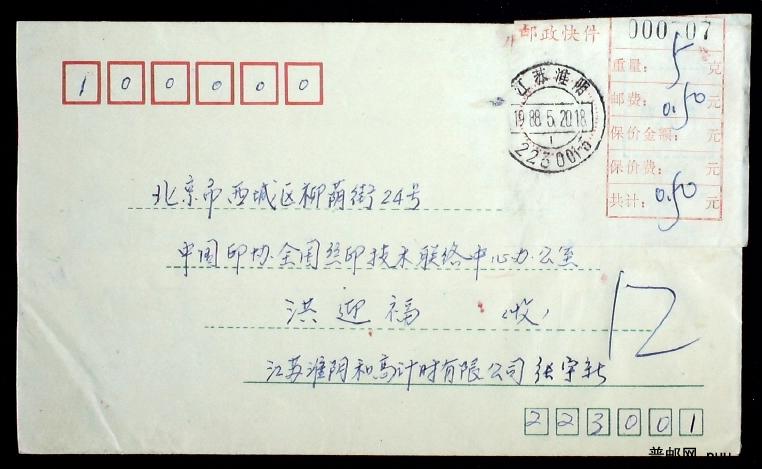 邮政快件 000707
重量: 5 克
邮费: 0.50 元
保价金额: 元
保价费: 元
共计: 0.50 元
江苏淮阴
1988.5.20.18
1
223001-5
100000
北京市西城区柳荫街24号
中国印协全国丝印技术联络中心办公室
洪迎福 (收)
12
江苏淮阴和高计时有限公司 张宇新
223001
普邮网